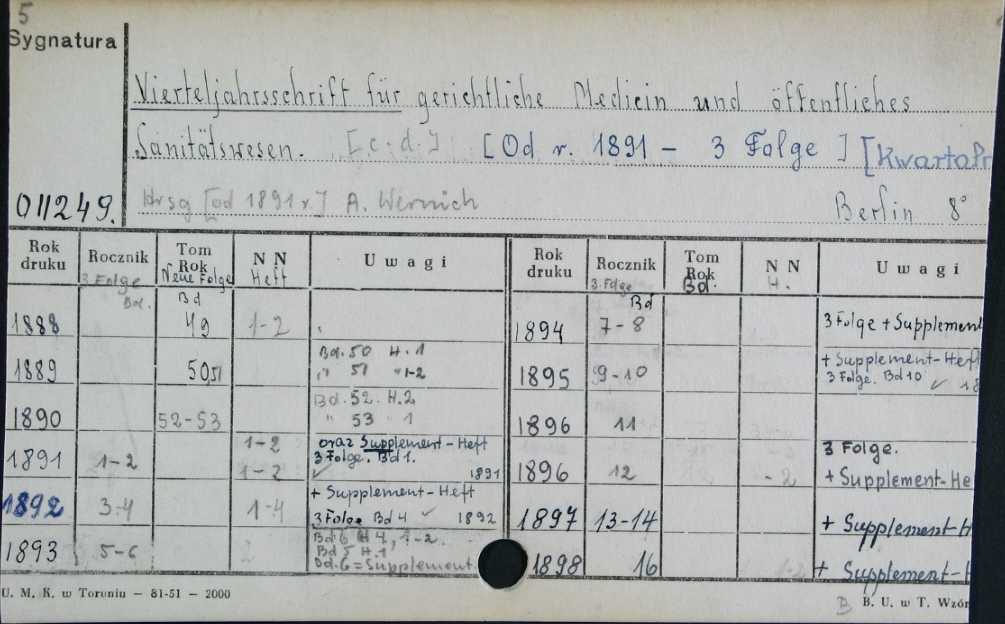 5
Sygnatura
Vierteljahrsschrift für gerichtliche Medicin und öffentliches
Sanitätswesen. [c.d.] [Od r. 1891 - 3 Folge] [Kwartaln
011249. Hrsg [od 1891 r.] A. Wernich Berlin 8°
Rok druku Rocznik 3 Folge Bd. Tom Rok Neue Folge Bd N N Heft Uwagi
1888 49 1-2
1889 50,51 Bd. 50 H. 1
" 51 " 1-2
1890 52-53 Bd. 52. H. 2
" 53 " 1
1891 1-2 1-2 1-2 oraz Supplement-Heft
3 Folge. Bd 1.
✓ 1891
1892 3-4 1-4 + Supplement-Heft
3 Folge Bd 4 ✓ 1892
1893 5-6 2 Bd 6 H 4, 1-2.
Bd 5 H. 1
Bd. 6 = Supplement.
Rok druku Rocznik 3. Folge Bd Tom Rok Bd. N N H. Uwagi
1894 7-8 3 Folge + Supplement
1895 9-10 + Supplement-Heft
3 Folge. Bd 10 ✓ 18
1896 11
1896 12 -2 3 Folge.
+ Supplement-He
1897 13-14 + Supplement-H
1898 16 1-2 + Supplement-H
U. M. K. w Toruniu - 81-51 - 2000
B B. U. w T. Wzór